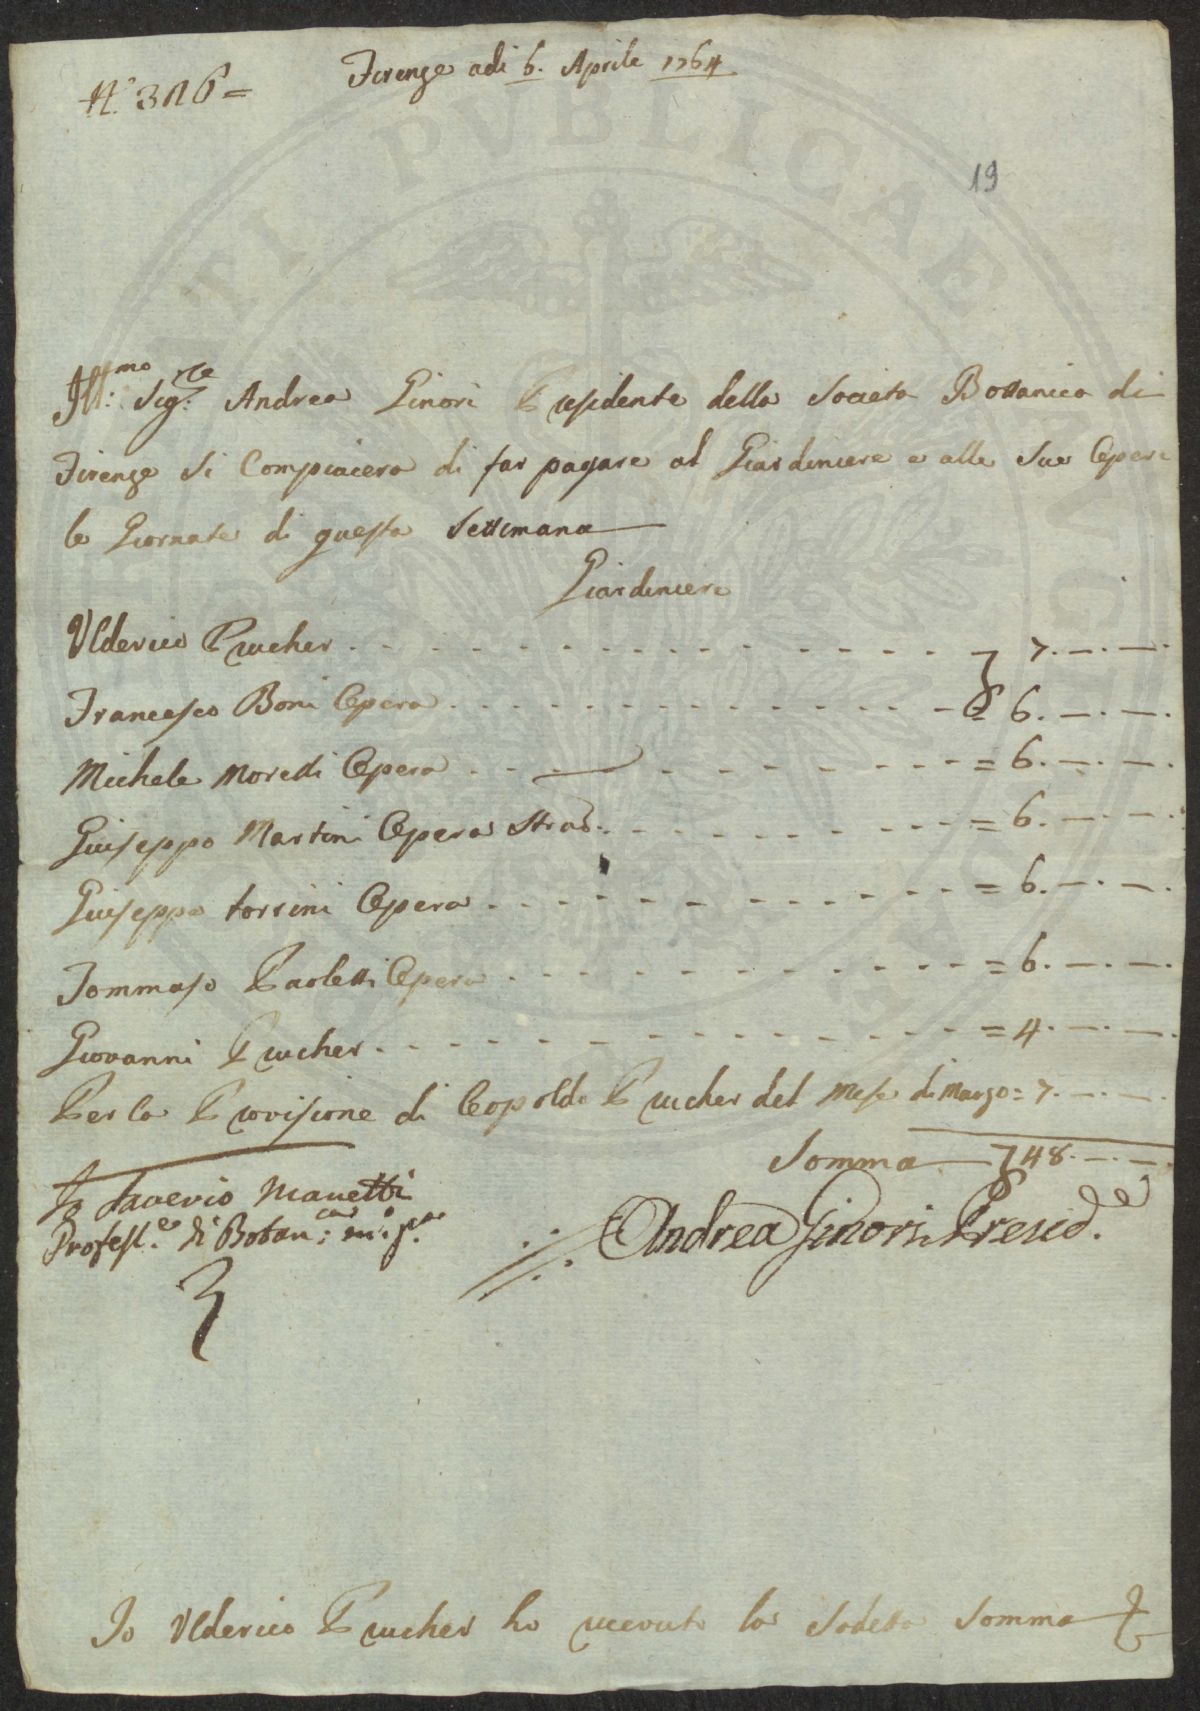 N.° 316=
Firenze adi 6. Aprile 1764
19
Ill:mo Sig:re Andrea Ginori Presidente della Società Bottanica di
Firenze Si Compiacera di far pagare al Giardiniere e alle Sue Opere
le Giornate di questa Settimana
Giardiniere
Ulderico Prucher 7. — . —
Francesco Boni Opera = 6. — . —
Michele Moretti Opera = 6. — . —
Giuseppe Martini Opera Stra: = 6. — . —
Giuseppe torrini Opera = 6. — . —
Tommaso Paoletti Opera = 6. — . —
Giovanni Prucher = 4. — . —
Per la Provisione di Leopoldo Prucher del Mese di Marzo = 7. — . —
Somma 48. — . —
Io Saverio Manetti
Profess.e di Botan:ca
Andrea Ginori Presid.e
Io Ulderico Prucher ho riceuto la Sodetta Somma
PVBLICAE